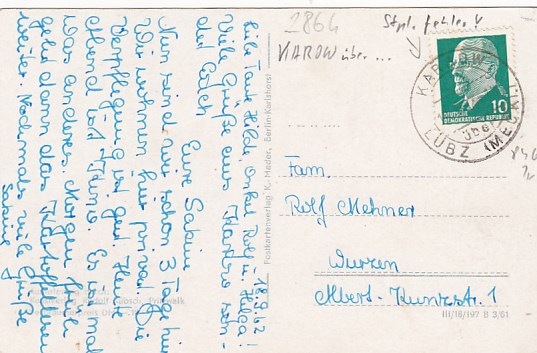 2864
Stpl. fehler!
KARow über ...
KAROW
über
LÜBZ (MECKL)
10
DEUTSCHE
DEMOKRATISCHE REPUBLIK
18.9.62
Liebe Tante Hilde, Onkel Rolf u. Helga!
Viele Grüße aus
Eure Sabine
Nun sind wir schon 3 Tage hier
Wir wohnen hier privat. Die
Verpflegung ist gut. Heute
Abend ist Kino. Es ist mal
was anderes. Morgen früh
geht dann das Kartoffellesen
weiter. Nochmals viele Grüße
Sabine
Postkartenverlag K. Meder, Berlin-Karlshorst
Fam.
Rolf Mehner
Wurzen
Albert-Kuntzstr. 1
III/18/197 B 3/61